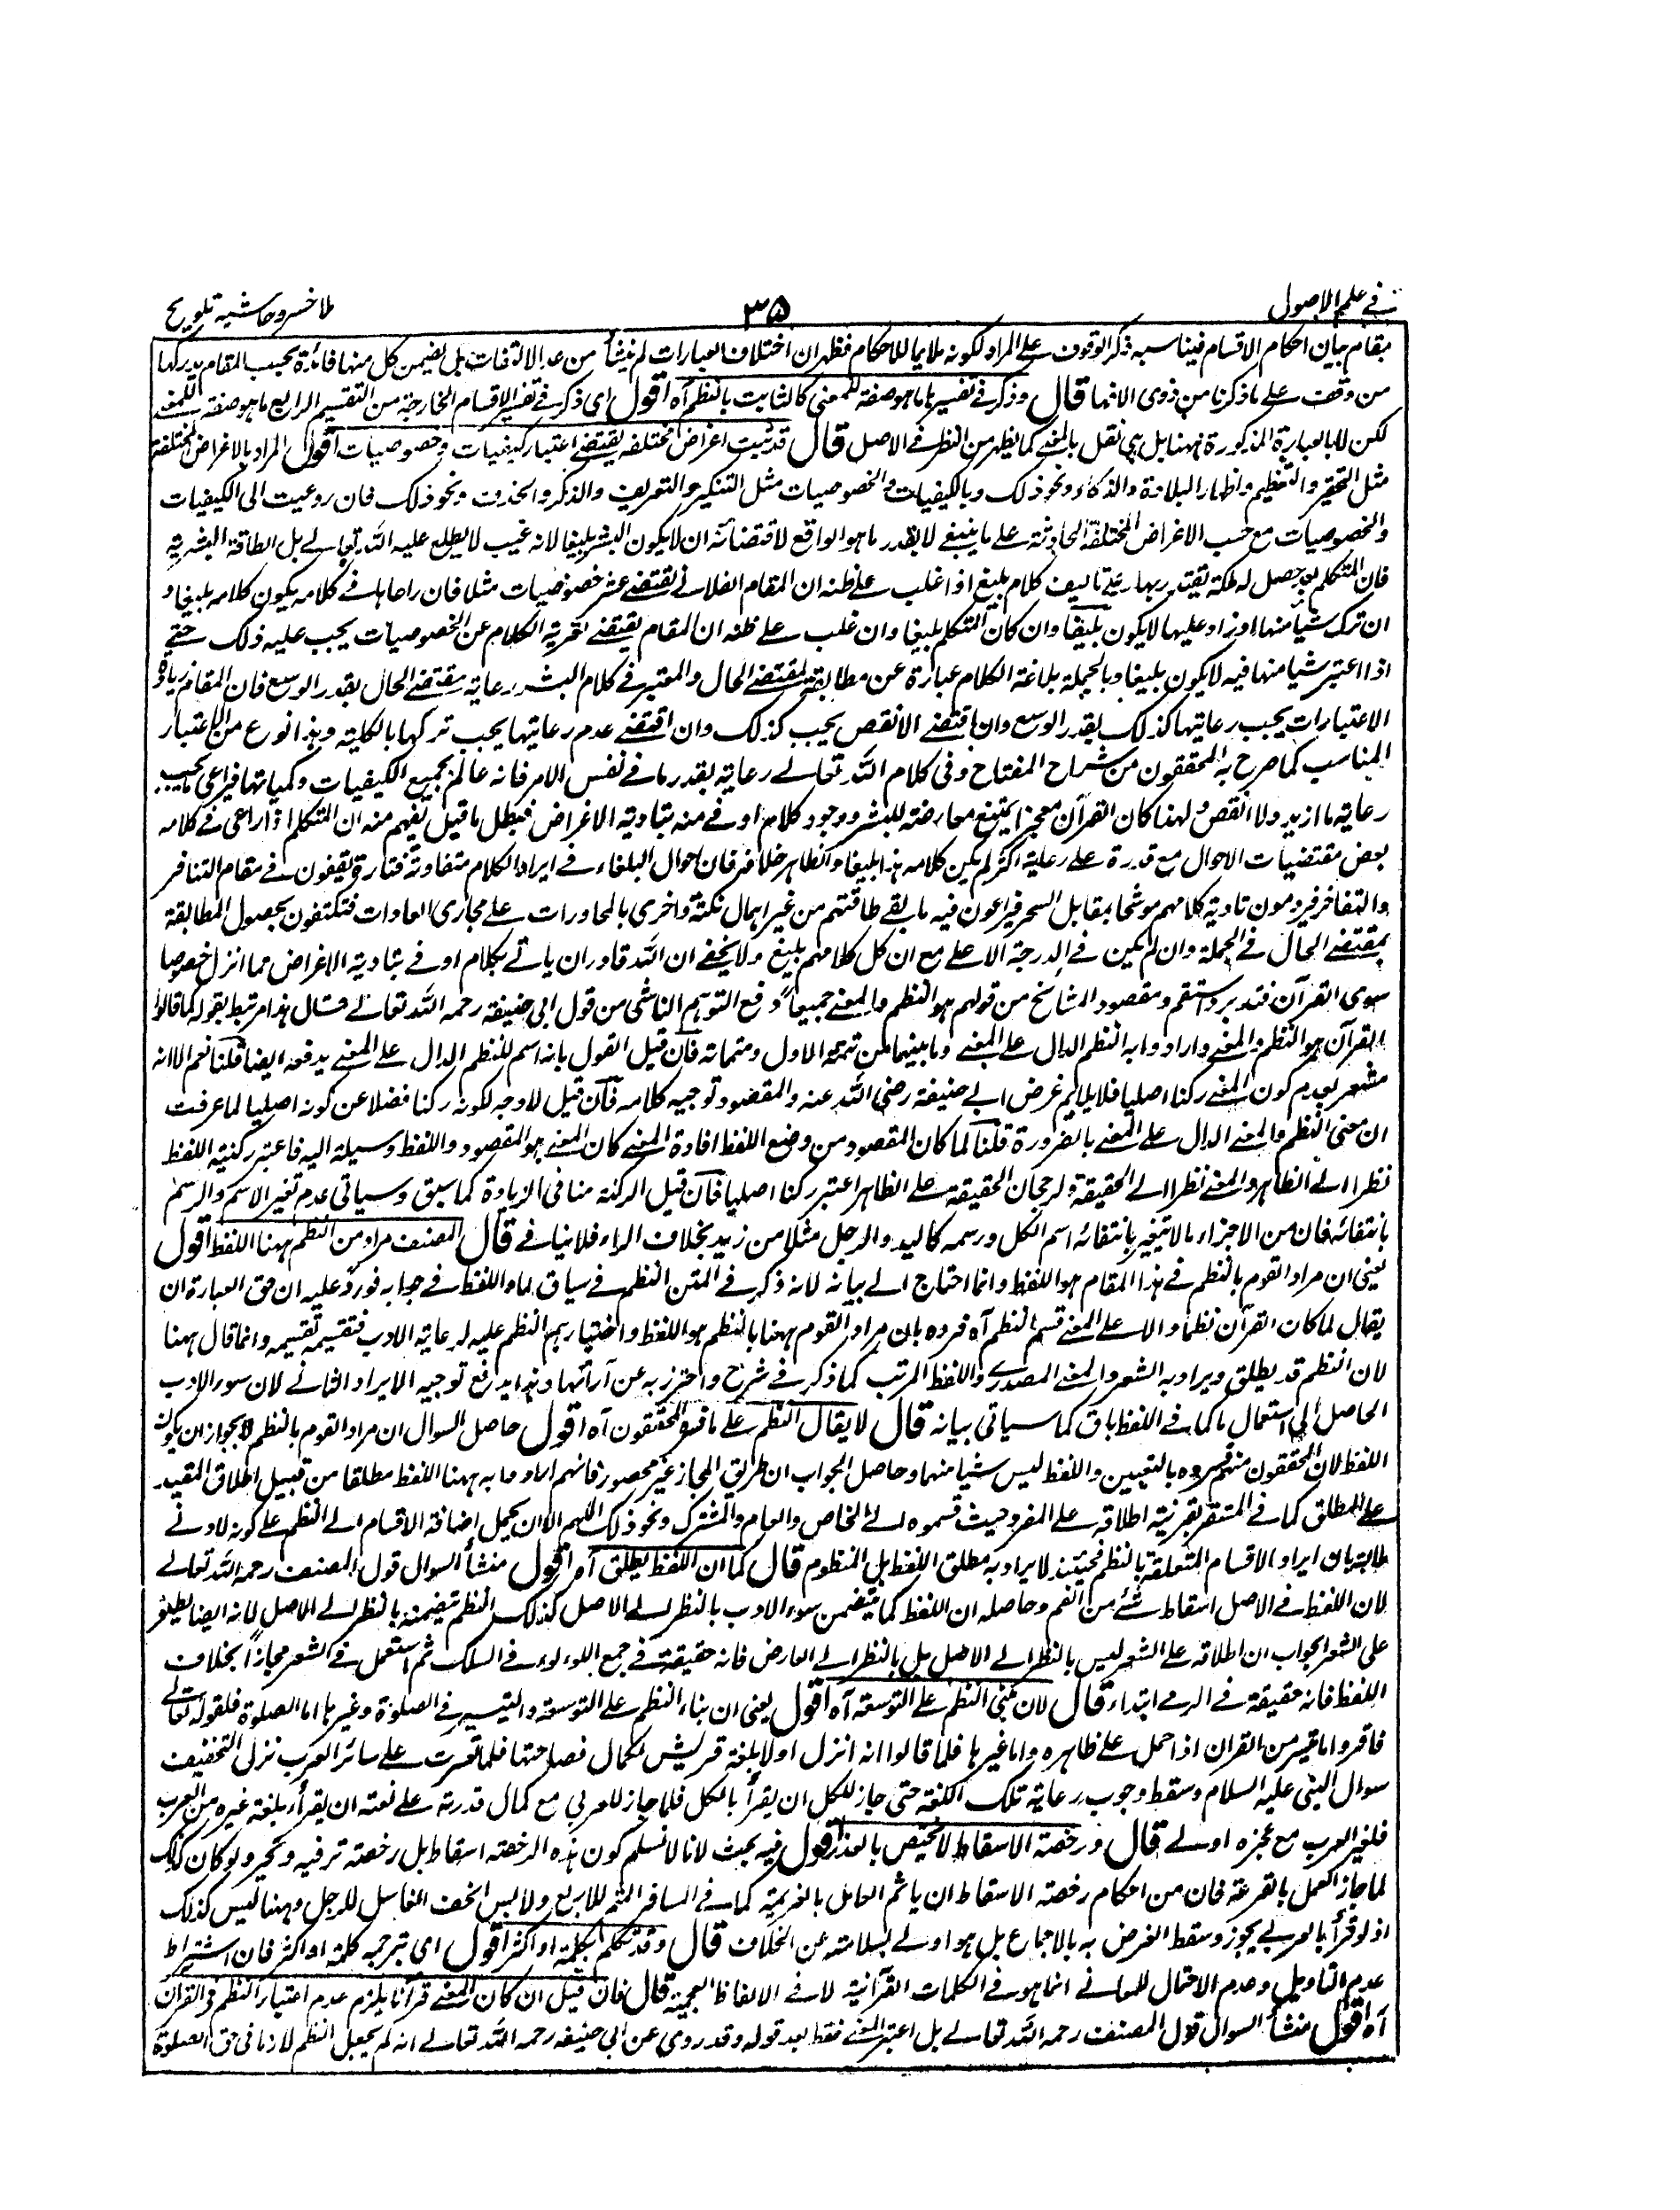 في علم الاصول
٣٥
ملا خسرو حاشية تلويح
بمقام بيان احكام الاقسام فيناسبه ذكر الوقوف على المراد لكونه ملايما للاحكام فظهر ان اختلاف العبارات لم ينشأ من عدم الالتفات بل يضمن كل منها فائدة بحسب المقام يدركها
من وقف على ما ذكرنا من ذوى الافهام قال وذكر فى تفسيرها ما هو صفة للمعنى كالثابت بالنظم آه اقول اى ذكر فى تفسير الاقسام الخارجة من التقسيم الرابع ما هو صفة للمعنى
لكن لا بالعبارة المذكورة ههنا بل هى نقل بالمعنى كما يظهر من النظر فى الاصل قال قد ثبت اغراض مختلفة يقتضى اعتبار كيفيات وخصوصيات اقول المراد بالاغراض المختلفة
مثل التحقير والتعظيم واظهار البلادة والذكاء ونحو ذلك وبالكيفيات والخصوصيات مثل التنكير والتعريف والذكر والحذف ونحو ذلك فان روعيت الى الكيفيات
والخصوصيات مع حسب الاغراض المختلفة الحادثة على ما ينبغى لا بقدر ما هو الواقع لاقتضائه ان لا يكون البشر بليغا لانه غيب لا يطلع عليه الله تعالى بل الطاقة البشرية
فان المتكلم حصل له ملكة يقتدر بها على تاليف كلام بليغ اذا غلب على ظنه ان المقام الفلانى يقتضى عشر خصوصيات مثلا فان راعاها فى كلامه يكون كلامه بليغا و
ان ترك شيأ منها او زاد عليها لا يكون بليغا وان كان المتكلم بليغا وان غلب على ظنه ان المقام يقتضى تعرية الكلام عن الخصوصيات يجب عليه ذلك حتى
اذا اعتبر شيا منها فيه لا يكون بليغا وبالجملة بلاغة الكلام عبارة عن مطابقته لمقتضى الحال والمعتبر فى كلام البشر رعاية مقتضى الحال بقدر الوسع فان المقام زيادة
الاعتبارات يجب رعايتها كذلك بقدر الوسع وان اقتضى الانقص يجب كذلك وان اقتضى عدم رعايتها يجب تركها بالكلية وهذا نوع من الاعتبار
المناسب كما صرح به المحققون من شراح المفتاح وفى كلام الله تعالى رعاية بقدر ما فى نفس الامر فانه عالم بجميع الكيفيات وكمياتها فيراعى ما يجب
رعاية ما ازيد ولا انقص ولهذا كان القرآن معجزا يمتنع معارضته للبشر ووجود كلام اوفى منه بتادية الاغراض فبطل ما قيل يفهم منه ان المتكلم اذا راعى فى كلامه
بعض مقتضيات الاحوال مع قدرة على رعاية اكثر لم يكن كلامه هذا بليغا والظاهر خلافه فان احوال البلغاء فى ايراد الكلام متفاوتة فتارة يقفون فى مقام التنافر
والتفاخر فيرومون تادية كلامهم موشحا بمقابل السحر فيراعون فيه ما بقى طاقتهم من غير اهمال نكتة واخرى بالمحاورات على مجارى العادات فيكتفون بحصول المطابقة
بمقتضى الحال فى الجملة وان لم يكن فى الدرجة الاعلى مع ان كل كلامهم بليغ ولا يخفى ان الله قادر ان ياتى بكلام اوفى بتادية الاغراض مما انزل خصوصا
سوى القرآن فتدبر واستقم ومقصود المشائخ من قولهم هو النظم والمعنى جميعا دفع التوهم الناشى من قول ابى حنيفة رحمه الله تعالى قال هذا مرتبط بقوله كما قالوا
القرآن هو النظم والمعنى وارادوا به النظم الدال على المعنى وما بينهما من تتمة الاول ومتمماته فان قيل القول بانه اسم للنظم الدال على المعنى يدفعه ايضا قلنا نعم الا انه
مشعر بعدم كون المعنى ركنا اصليا فلا يلايم غرض ابى حنيفة رضى الله عنه والمقصود توجيه كلامه فان قيل لا وجه لكونه ركنا فضلا عن كونه اصليا لما عرفت
ان معنى النظم والمعنى الدال على المعنى بالضرورة قلنا لما كان المقصود من وضع اللفظ افادة المعنى كان المعنى هو المقصود واللفظ وسيلة اليه فاعتبر ركنية اللفظ
نظرا الى الظاهر والمعنى نظرا الى الحقيقة ولرجحان الحقيقة على الظاهر اعتبر ركنا اصليا فان قيل الركنة منافى الزيادة كما سبق وسياتى عدم تغير الاسم والرسم
بانتفائه فان من الاجزاء ما لا يتغير بانتفائه اسم الكل ورسمه كاليد والرجل مثلا من زيد بخلاف الراء فلا ينافى قال المصنف مراده من النظم ههنا اللفظ اقول
يعنى ان مراد القوم بالنظم فى هذا المقام هو اللفظ وانما احتاج الى بيانه لانه ذكر فى المتن النظم فى سياق لما واللفظ فى جوابه فورد عليه ان حق العبارة ان
يقال لما كان القرآن نظما دالا على المعنى قسم النظم آه فرده بان مراد القوم ههنا بالنظم هو اللفظ واختيارهم النظم عليه لرعاية الادب فتقسيمه تقسيمه وانما قال ههنا
لان النظم قد يطلق ويراد به الشعر والمعنى المصدرى واللفظ المرتب كما ذكر فى شرح واحترز به عن آرائها وهذا يدفع توجيه الايراد الثانى لان سوء الادب
الحاصل الى استعمال ما كما فى اللفظ باق كما سياتى بيانه قال لا يقال النظم على ما فسره المحققون آه اقول حاصل السوال ان مراد القوم بالنظم لا يجوز ان يكون
اللفظ لان المحققون منهم فسروه بالتعيين واللفظ ليس شيا منها وحاصل الجواب ان طريق المجاز غير محصور فانهم ارادوا به ههنا اللفظ مطلقا من قبيل اطلاق المقيد
على المطلق كما فى المشفر بقرينة اطلاقه على المفرد حيث قسموه الى الخاص والعام والمشترك ونحو ذلك اللهم الا ان يحمل اضافة الاقسام الى النظم على كونه لادنى
ملابسة بان ايراد الاقسام المتعلقة بالنظم فحينئذ لا يراد به مطلق اللفظ بل المنظوم قال كما ان اللفظ يطلق آه اقول منشأ السوال قول المصنف رحمه الله تعالى
لان اللفظ فى الاصل اسقاط شئ من الفم وحاصله ان اللفظ كما يتضمن سوء الادب بالنظر الى الاصل كذلك النظم يتضمنه بالنظر الى الاصل لانه ايضا يطلق
على الشعر الجواب ان اطلاقه على الشعر ليس بالنظر الى الاصل بل بالنظر الى العارض فانه حقيقة فى جمع اللؤلؤ فى السلك ثم استعمل فى الشعر مجازا بخلاف
اللفظ فانه حقيقة فى الرمى ابتداء قال لان مبنى النظم على التوسعة آه اقول يعنى ان بناء النظم على التوسعة والتيسير فى الصلوة وغيرها اما الصلوة فلقوله تعالى
فاقروا ما تيسر من القران اذا حمل على ظاهره واما غيرها فلما قالوا انه انزل اولا بلغة قريش لكمال فصاحتها فلما تعسرت على سائر العرب نزل التخفيف
سوال النبى عليه السلام وسقط وجوب رعاية تلك اللغة حتى جاز للكل ان يقرأ بالكل فلما جاز للعربى مع كمال قدرته على لغته ان يقرأ بلغة غيره من العرب
فلغير العرب مع عجزه اولى قال ورخصة الاسقاط لا تختص بالعذر اقول فيه بحث لانا لا نسلم كون هذه الرخصة اسقاط بل رخصة ترفيه وتخيير ولو كان كذلك
لما جاز العمل بالعزيمة فان من احكام رخصة الاسقاط ان ياثم العامل بالعزيمة كما فى المسافر المتم للاربع ولابس الخف الغاسل للرجل وههنا ليس كذلك
اذ لو قرأ بالعربى يجوز وسقط الفرض به بالاجماع بل هو اولى لسلامته عن الخلاف قال وقد تكلم بكلمة او اكثر اقول اى بترجمة كلمة او اكثر فان اشتراط
عدم التاويل وعدم الاحتمال للمعانى انما هو فى الكلمات القرآنية لا فى الالفاظ العجمية قال فان قيل ان كان المعنى قرآنا يلزم عدم اعتبار النظم فى القرآن
آه اقول منشأ السوال قول المصنف رحمه الله تعالى بل اعتبر المعنى فقط بعد قوله وقد روى عن ابى حنيفه رحمه الله تعالى انه لم يجعل النظم لازما فى حق الصلوة